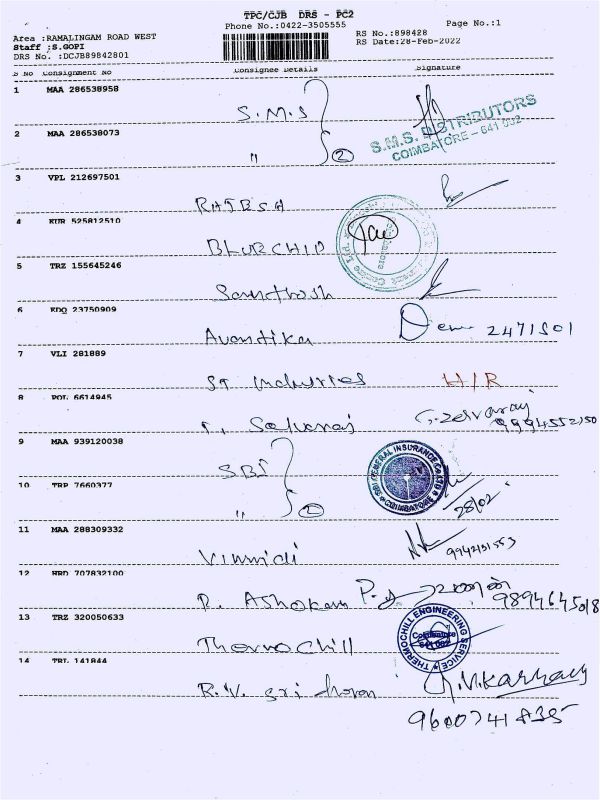 TPC/CJB DRS - PC2
Phone No.:0422-3505555
Page No.:1
Area :RAMALINGAM ROAD WEST
RS No.:898428
Staff :S.GOPI
RS Date:28-Feb-2022
DRS No. :DCJB89842801
S No Consignment No Consignee Details Signature
1 MAA 286538958
S.M.S
S.M.S. DISTRIBUTORS
COIMBATORE - 641 002
2 MAA 286538073
" 2
3 VPL 212697501
RAJBSA
4 KUR 525812510
BLUECHIP
5 TRZ 155645246
Santhosh
6 KDQ 23750909
Avantika
2471501
7 VLI 281889
ST Industries H/R
8 POL 6614945
9994552150
9 MAA 939120038
SBI
SBI GENERAL INSURANCE CO LTD
COIMBATORE
10 TRP 7660377
" 2
28/02
11 MAA 288309332
9942151553
12 HRD 707832100
R. Ashokan
9894645018
13 TRZ 320050633
Thermochill
THERMOCHILL ENGINEERING SERVICE
Coimbatore
641 002
14 TRL 141844
R.V. Sri
9600741835